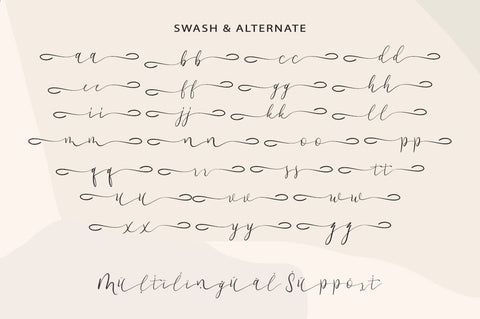 SWASH & ALTERNATE
aa bb cc dd
ee ff gg hh
ii jj kk ll
mm nn oo pp
qq rr ss tt
uu vv ww
xx yy gg
Multilingual Support